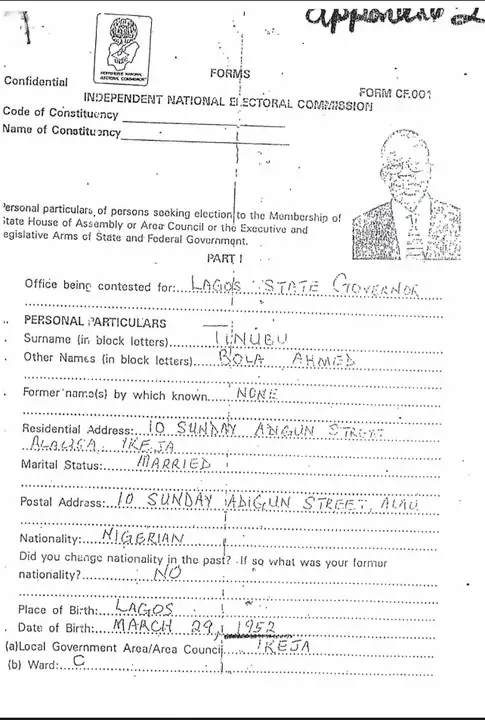 Appendix 2
INDEPENDENT NATIONAL
ELECTORAL COMMISSION
Confidential
FORMS
FORM CF.001
INDEPENDENT NATIONAL ELECTORAL COMMISSION
Code of Constituency
Name of Constituency
Personal particulars of persons seeking election to the Membership of
State House of Assembly or Area Council or the Executive and
Legislative Arms of State and Federal Government.
PART I
Office being contested for: LAGOS STATE GOVERNOR
PERSONAL PARTICULARS
Surname (in block letters) TINUBU
Other Names (in block letters) BOLA AHMED
Former name(s) by which known NONE
Residential Address: 10 SUNDAY ADIGUN STREET
ALAUSA IKEJA
Marital Status: MARRIED
Postal Address: 10 SUNDAY ADIGUN STREET, ALAU
Nationality: NIGERIAN
Did you change nationality in the past? If so what was your former
nationality? NO
Place of Birth: LAGOS
Date of Birth: MARCH 29, 1952
(a)Local Government Area/Area Council IKEJA
(b) Ward: C